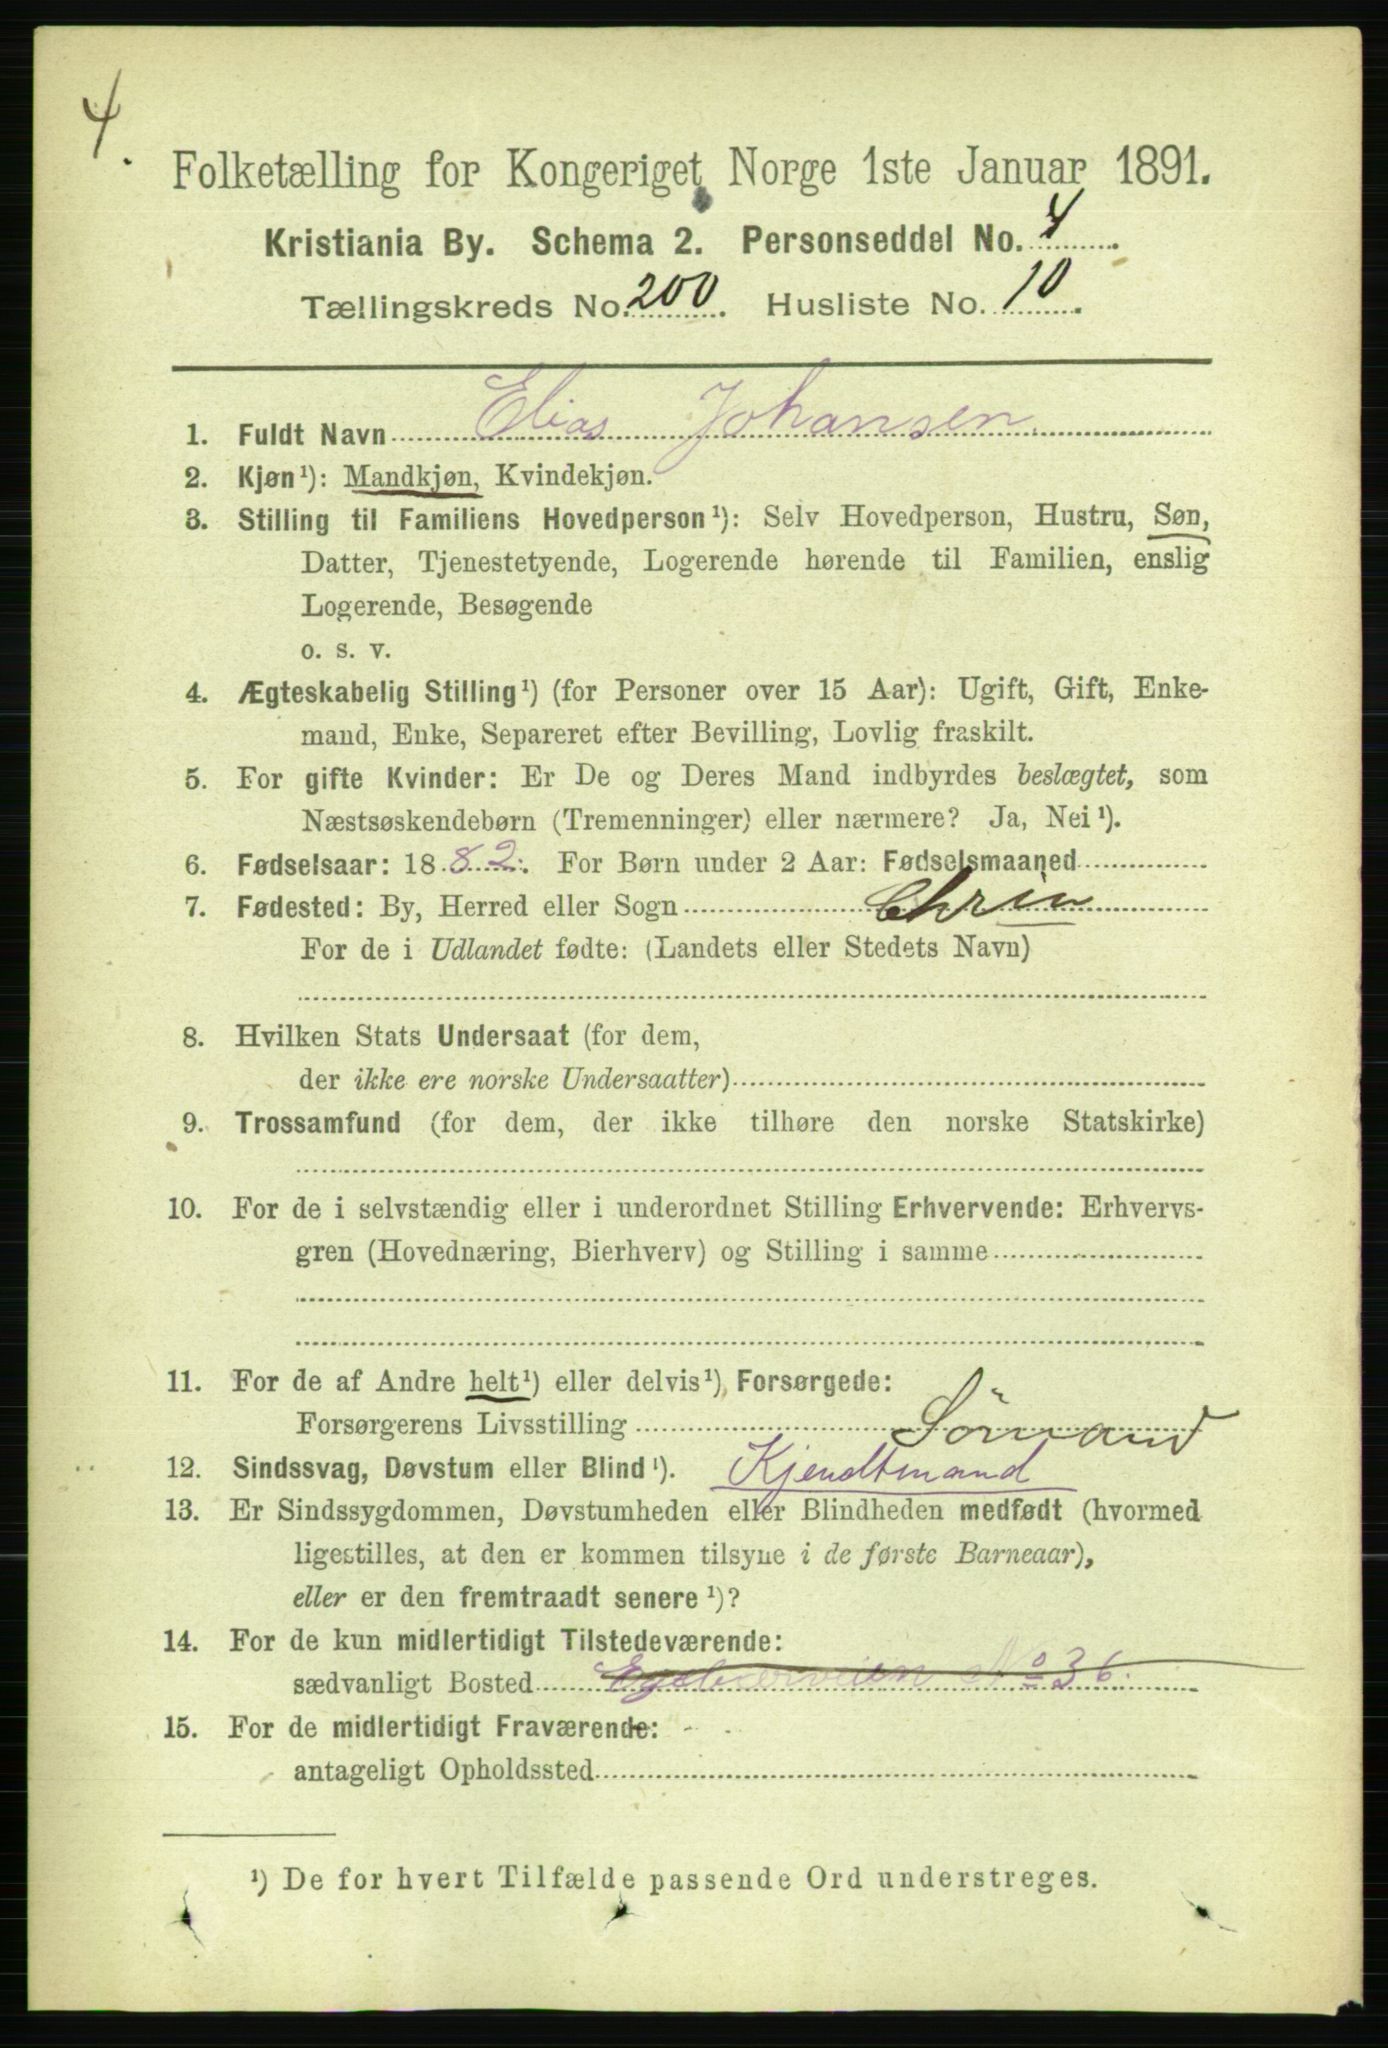 4.
Folketælling for Kongeriget Norge 1ste Januar 1891.
Kristiania By. Schema 2. Personseddel No. 4.
Tællingskreds No. 200. Husliste No. 10.
1. Fuldt Navn Elias Johansen
2. Kjøn¹): Mandkjøn, Kvindekjøn.
3. Stilling til Familiens Hovedperson¹): Selv Hovedperson, Hustru, Søn,
Datter, Tjenestetyende, Logerende hørende til Familien, enslig
Logerende, Besøgende
o. s. v.
4. Ægteskabelig Stilling¹) (for Personer over 15 Aar): Ugift, Gift, Enke-
mand, Enke, Separeret efter Bevilling, Lovlig fraskilt.
5. For gifte Kvinder: Er De og Deres Mand indbyrdes beslægtet, som
Næstsøskendebørn (Tremenninger) eller nærmere? Ja, Nei¹).
6. Fødselsaar: 1882. For Børn under 2 Aar: Fødselsmaaned
7. Fødested: By, Herred eller Sogn Chrin
For de i Udlandet fødte: (Landets eller Stedets Navn)
8. Hvilken Stats Undersaat (for dem,
der ikke ere norske Undersaatter)
9. Trossamfund (for dem, der ikke tilhøre den norske Statskirke)
10. For de i selvstændig eller i underordnet Stilling Erhvervende: Erhvervs-
gren (Hovednæring, Bierhverv) og Stilling i samme
11. For de af Andre helt¹) eller delvis¹), Forsørgede:
Forsørgerens Livsstilling Sömand
12. Sindssvag, Døvstum eller Blind¹). Kjendtmand
13. Er Sindssygdommen, Døvstumheden eller Blindheden medfødt (hvormed
ligestilles, at den er kommen tilsyne i de første Barneaar),
eller er den fremtraadt senere¹)?
14. For de kun midlertidigt Tilstedeværende:
sædvanligt Bosted No 36.
15. For de midlertidigt Fraværende:
antageligt Opholdssted
¹) De for hvert Tilfælde passende Ord understreges.